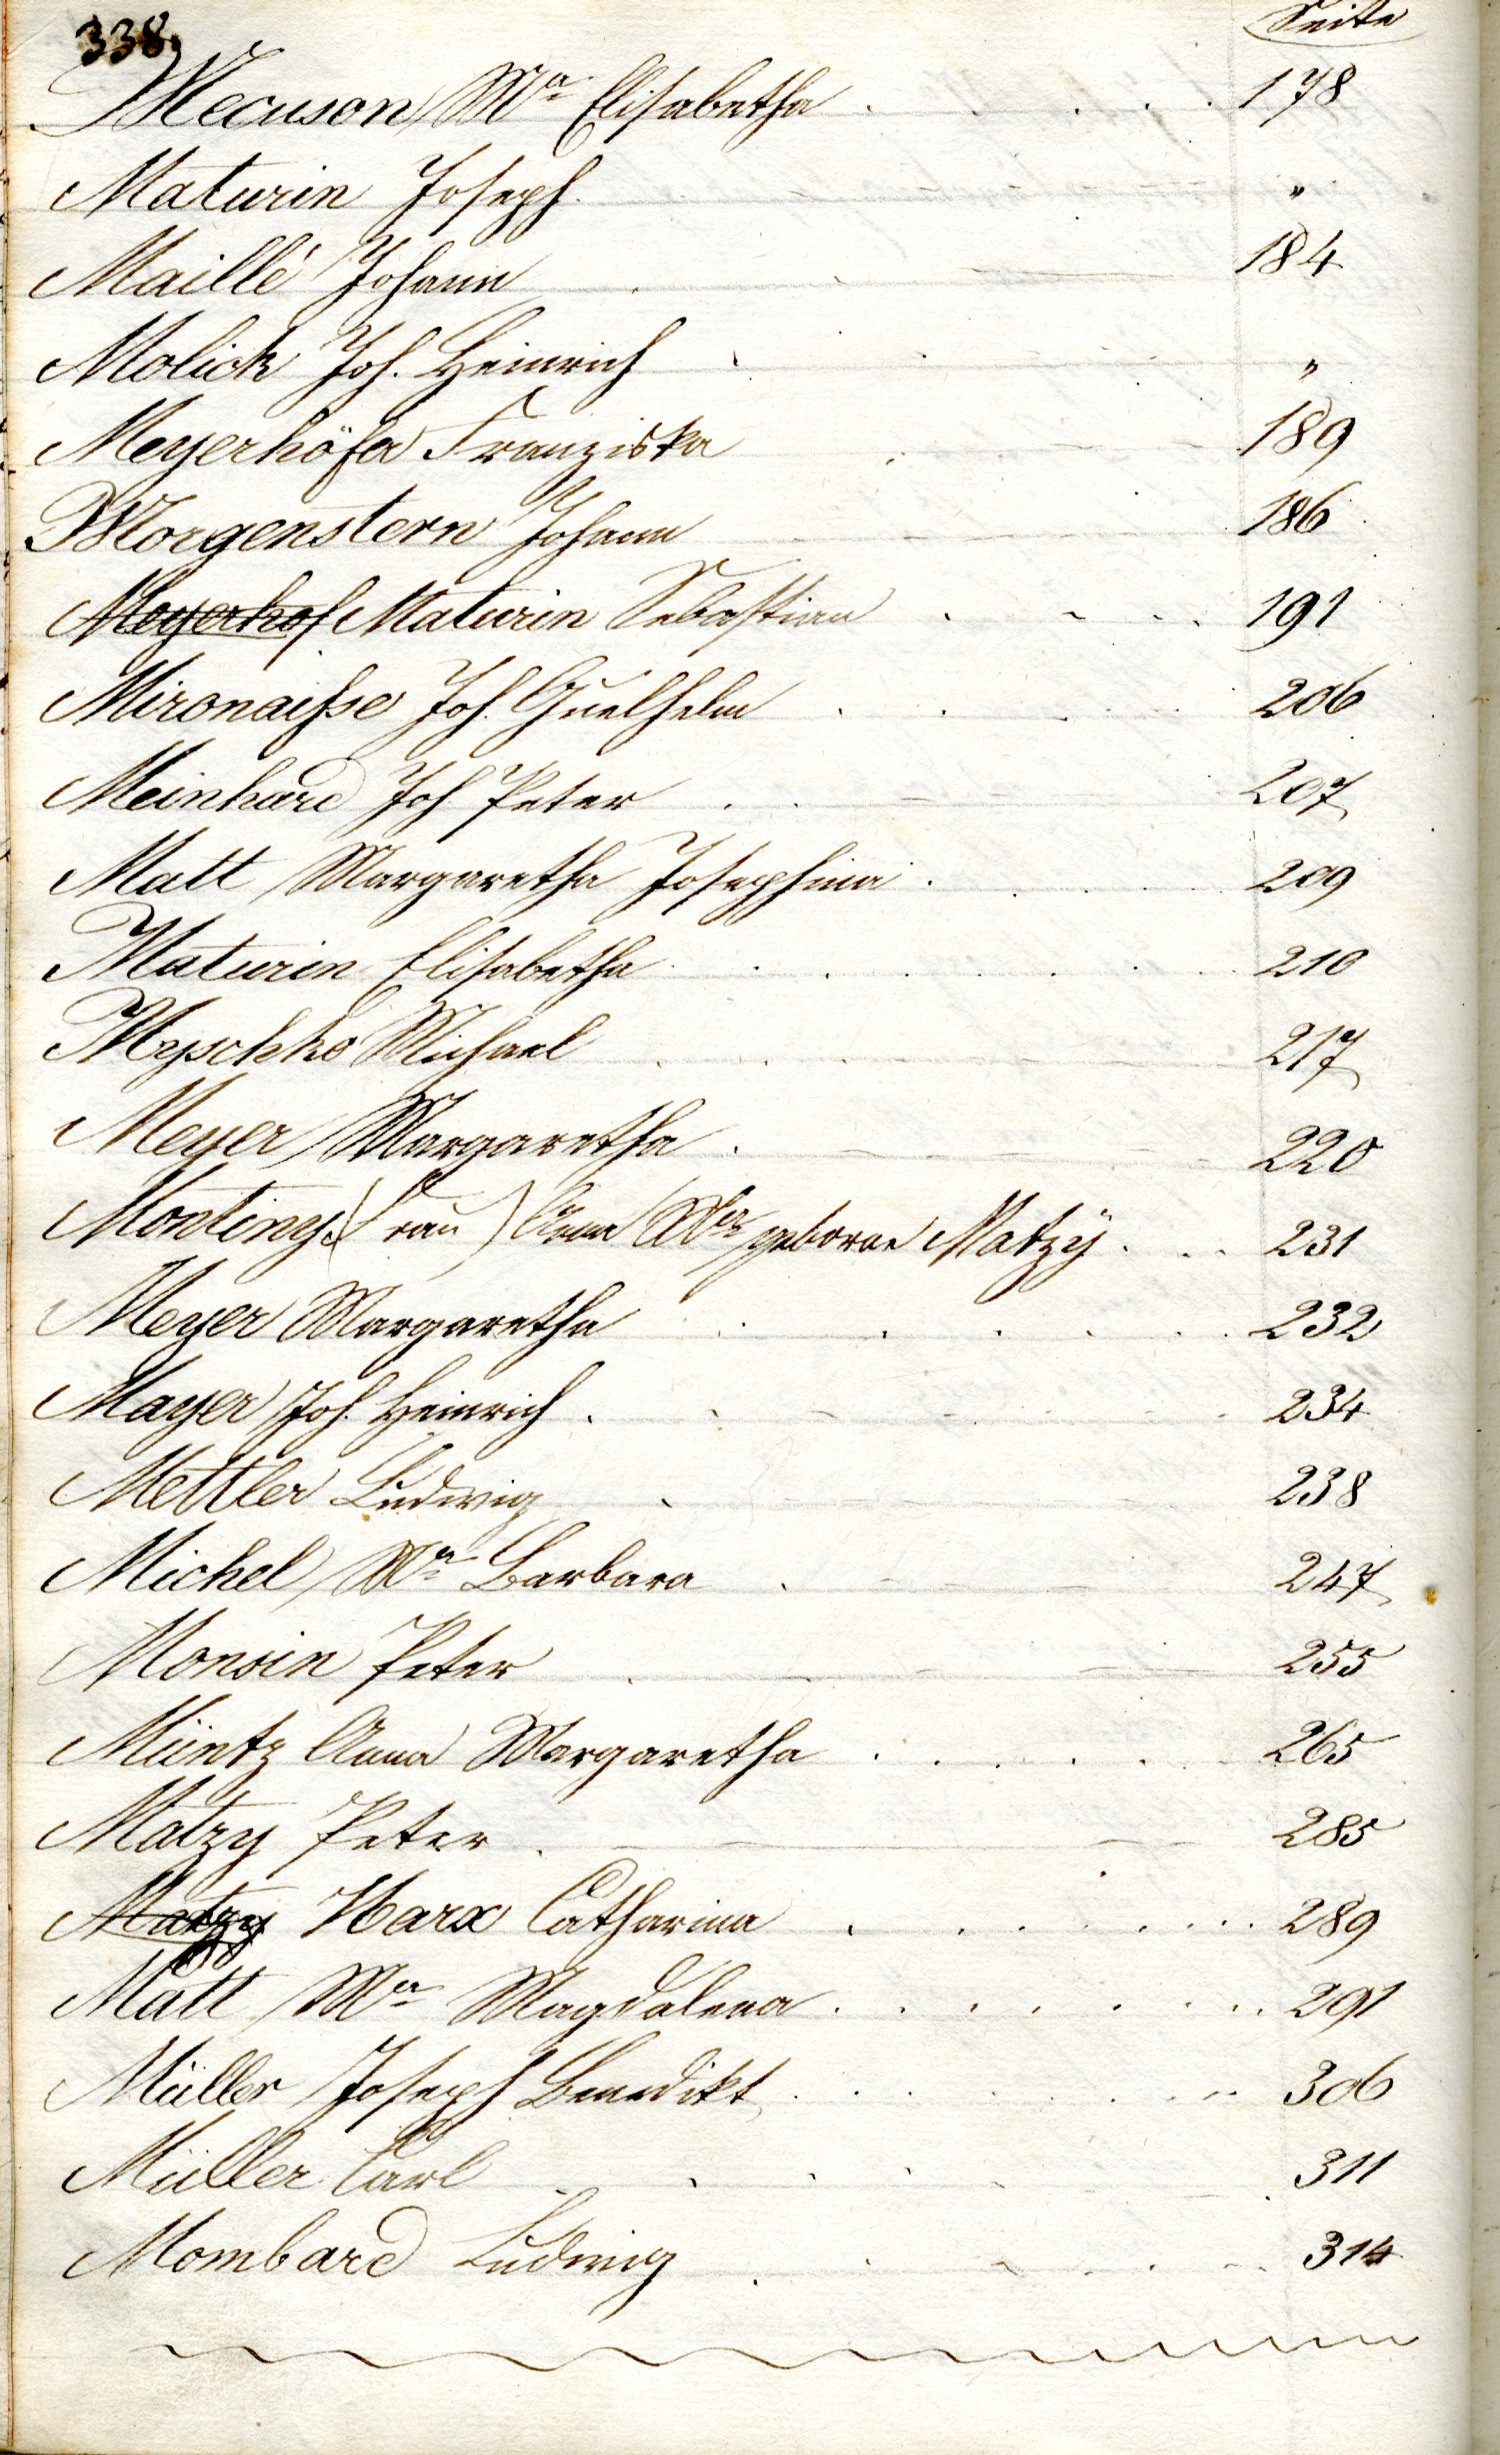 338.
Seite
Mecuson Ma Elisabetha . . . . 178
Maturin Joseph "
Maillé Johann . 184
Molick Joh. Heinrich "
Meyerhöfer Franziska 189
Morgenstern Johann 186
Meyerhof Maturin Sebastian . . . . 191
Mironaisse Joh. Guelhelm . . . . 206
Meinhard Joh Peter . . 207
Matt Margaretha Josephina . . . . 209
Maturin Elisabetha . . . . . . 210
Michael . . . 217
Meyer Margaretha . 220
Montiny (Frau) Anna Ma geborne Matzÿ . . . 231
Meyer Margaretha . . . . . 232
Mayer Joh. Heinrich . . 234
Mettler Ludwig . 238
Michel Ma Barbara . 247
Monoin Peter . 255
Müntz Anna Margaretha . . . . . 265
Matzy Peter . 285
Matzy Marx Catharina . . . . . . 289
Matt Ma Magdalena . . . . . . . 291
Müller Joseph Benedikt . . . . . . 306
Müller Carl . . . . 311
Mombard Ludwig . . . . . 314